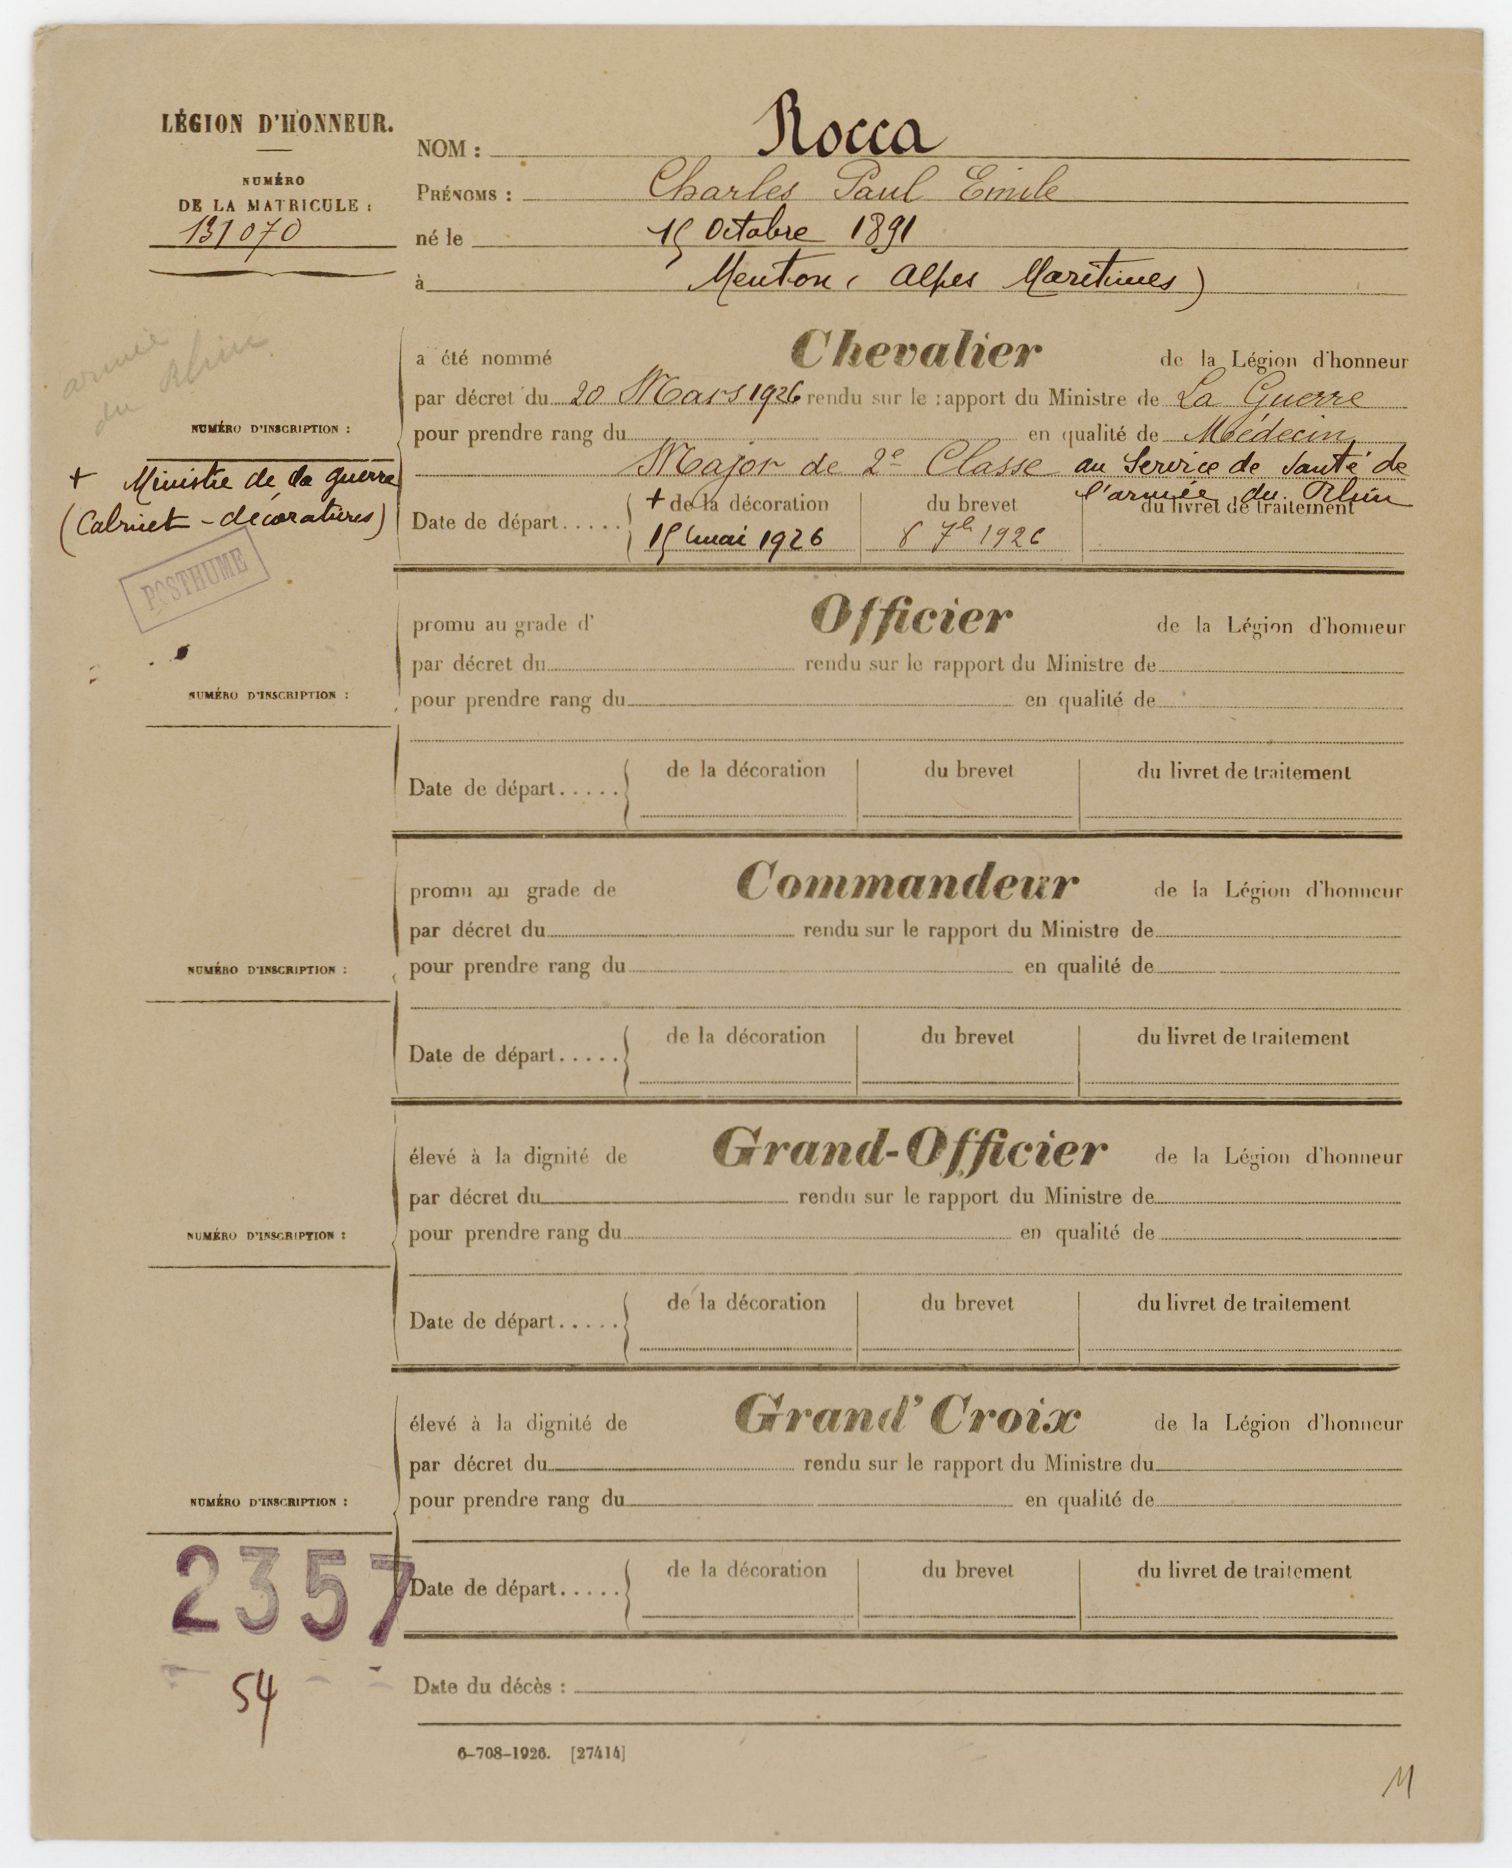 LÉGION D'HONNEUR.
NUMÉRO
DE LA MATRICULE :
131070
NOM : Rocca
PRÉNOMS : Charles Paul Emile
né le 15 Octobre 1891
à Menton (Alpes Maritimes)
armée
du Rhin
a été nommé Chevalier de la Légion d'honneur
par décret du 20 Mars 1926 rendu sur le rapport du Ministre de La Guerre
NUMÉRO D'INSCRIPTION :
pour prendre rang du en qualité de Médecin
Major de 2e Classe au Service de Santé de
l'armée du Rhin
+ Ministre de la guerre
(Cabinet - décorations)
Date de départ..... + de la décoration du brevet du livret de traitement
15 mai 1926 8 7b 1926
POSTHUME
promu au grade d' Officier de la Légion d'honneur
par décret du rendu sur le rapport du Ministre de
NUMÉRO D'INSCRIPTION :
pour prendre rang du en qualité de
Date de départ..... de la décoration du brevet du livret de traitement
promu au grade de Commandeur de la Légion d'honneur
par décret du rendu sur le rapport du Ministre de
NUMÉRO D'INSCRIPTION :
pour prendre rang du en qualité de
Date de départ..... de la décoration du brevet du livret de traitement
élevé à la dignité de Grand-Officier de la Légion d'honneur
par décret du rendu sur le rapport du Ministre de
NUMÉRO D'INSCRIPTION :
pour prendre rang du en qualité de
Date de départ..... de la décoration du brevet du livret de traitement
élevé à la dignité de Grand'Croix de la Légion d'honneur
par décret du rendu sur le rapport du Ministre du
NUMÉRO D'INSCRIPTION :
pour prendre rang du en qualité de
2357
Date de départ..... de la décoration du brevet du livret de traitement
54
Date du décès :
6-708-1926. [27414]